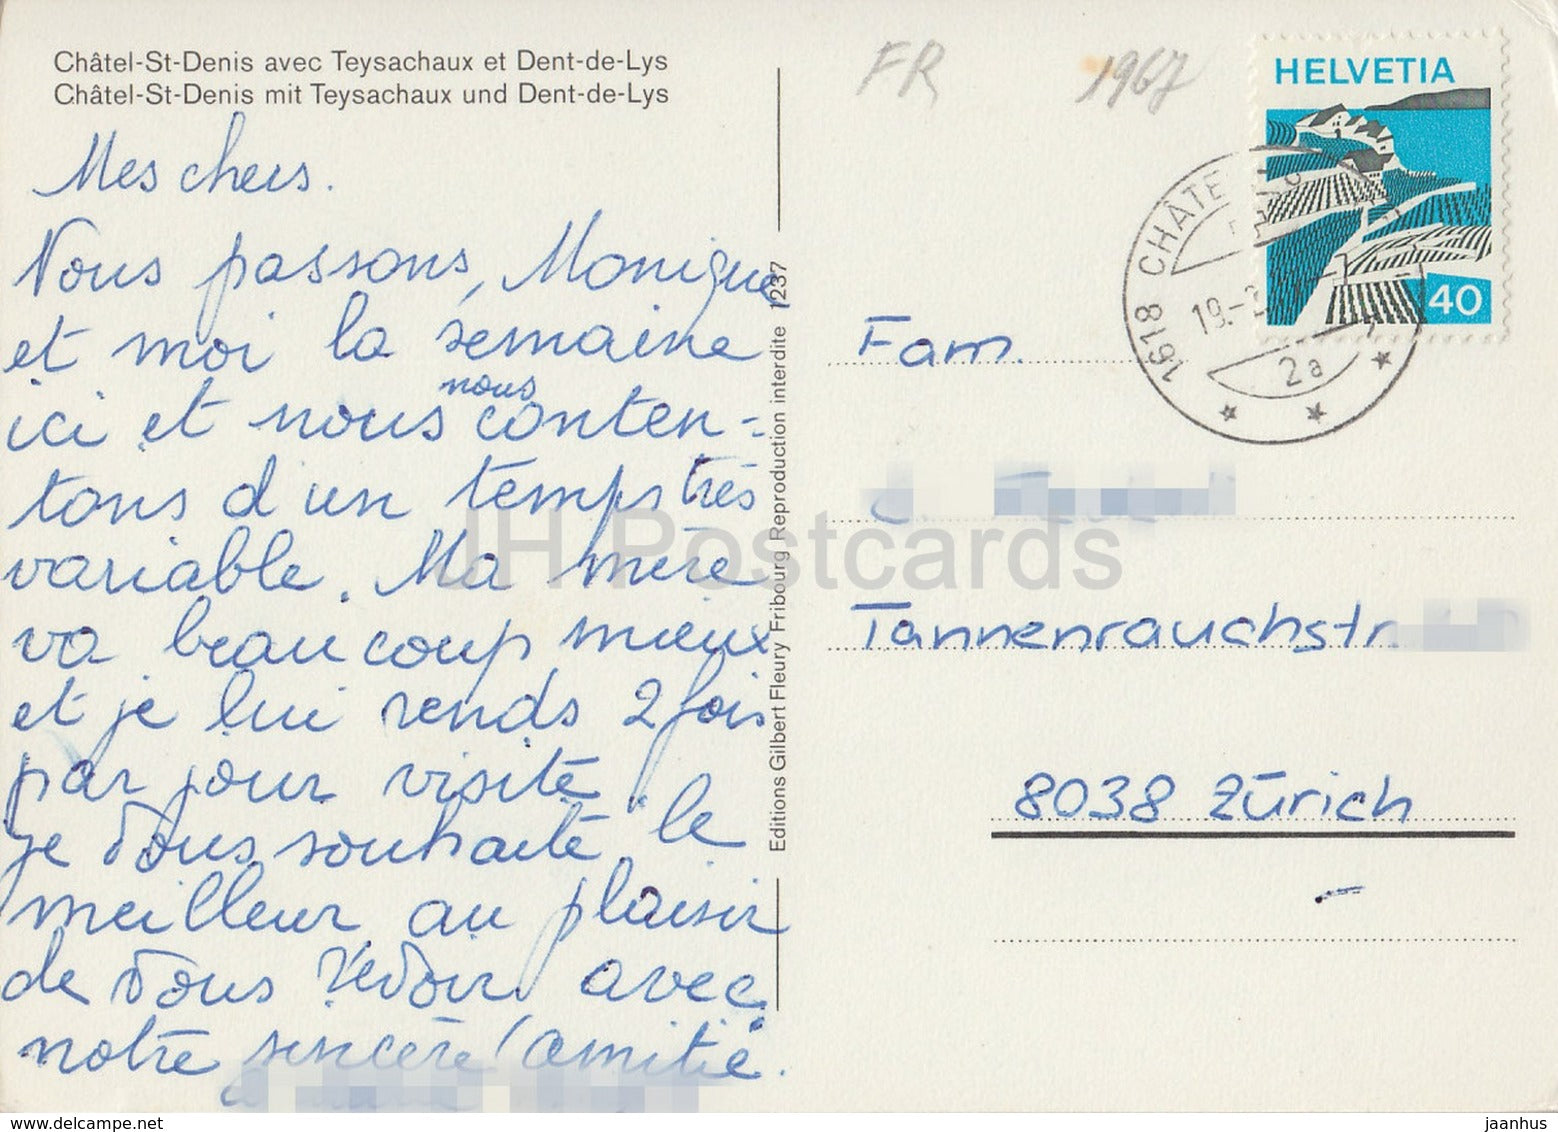 Châtel-St-Denis avec Teysachaux et Dent-de-Lys
Châtel-St-Denis mit Teysachaux und Dent-de-Lys
Mes chers.
Nous passons, Monique
et moi la semaine
ici et nous nous conten-
tons d'un temps très
variable. Ma mère
va beaucoup mieux
et je lui rends 2 fois
par jour visite
je vous souhaite le
meilleur au plaisir
de vous revoir avec
notre sincère amitié.
Editions Gilbert Fleury Fribourg Reproduction interdite 1237
FR 1967
HELVETIA
40
1618 CHÂTEL
19.-
2a
Fam.
Tannenrauchstr.
8038 Zürich
JH Postcards
www.delcampe.net
jaanhus